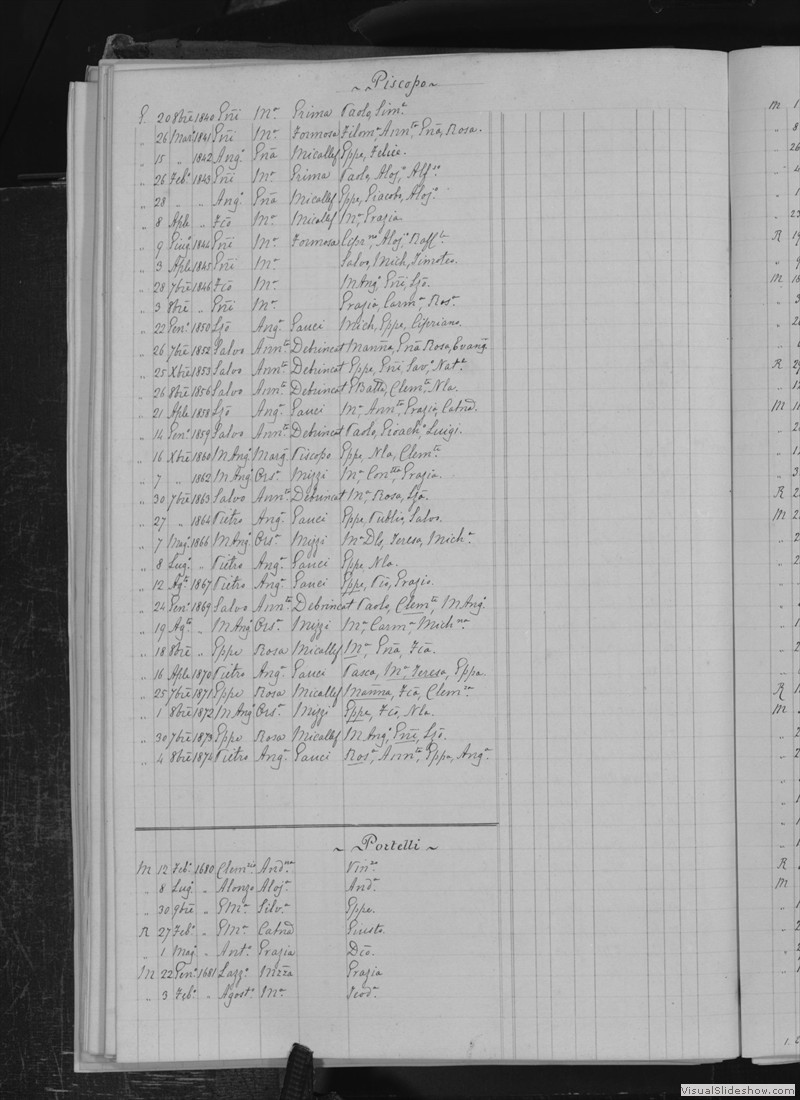 ~ Piscopo ~
G. 20 8bre 1840 Eñi Mª Prima Paolo, Simᵉ
„ 26 Mar 1841 Eñi Mª Formosa Filomª Annᵗᵃ, Eña, Rosa.
„ 15 „ 1842 Angº Eña Micallef Eppe, Felice.
„ 26 Febº 1843 Eñi Mª Prima Paolo, Alojº, Alfˢᵒ
„ 28 „ „ Angº Eña Micallef Eppe, Giacobo, Alojº
„ 8 Aple „ Fco Mª Micallef Mª, Grazia
„ 9 Giugº 1844 Eñi Mª Formosa Ciprⁿᵒ, Alojº, Raffˡᵉ
„ 3 Aple 1845 Eñi Mª Salvo, Mich, Timoteo.
„ 28 7bre 1846 Fco Mª MAngº, Eñi, Ljo.
„ 3 8bre „ Eñi Mª Grazia, Carmª, Rosª
„ 22 Genº 1850 Ljo Angª Gauci Mich, Eppe, Cipriano.
„ 26 7bre 1852 Salvo Annᵗᵃ Debrincat Marinna, Eña Rosa, Evangª
„ 25 Xbre 1853 Salvo Annᵗᵃ Debrincat Eppe, Eñi, Savº, Natˡᵉ
„ 26 8bre 1856 Salvo Annᵗᵃ Debrincat GBatta, Clemᵗᵉ, Nla.
„ 21 Aple 1858 Ljo Angª Gauci Mª, Annᵗᵃ, Grazia, Catnª
„ 14 Genº 1859 Salvo Annᵗᵃ Debrincat Paolo, Gioachº, Luigi.
„ 16 Xbre 1860 MAngº Marg. Piscopo Eppe, Nla, Clemᵗᵉ
„ 7 „ 1862 MAngº Orsª Mizzi Mª, Conᵗᵗᵃ, Grazia.
„ 30 7bre 1863 Salvo Annᵗᵃ Debrincat Mª Rosa, Lja.
„ 27 „ 1864 Pietro Angª Gauci Eppe, Publio, Salvo.
„ 7 Magº 1866 MAngº Orsª Mizzi Mª Dls, Teresa, Michª
„ 8 Lugº „ Pietro Angª Gauci Eppe, Nla.
„ 12 Agᵗᵒ 1867 Pietro Angª Gauci Eppe, Pio, Grazio.
„ 24 Genº 1869 Salvo Annᵗᵃ Debrincat Paolo, Clemᵗᵉ, MAngº
„ 19 Agᵗᵒ „ MAngº Orsª Mizzi Mª, Carmª, Michⁿᵃ
„ 18 8bre „ Eppe Rosa Micallef Mª, Eña, Fca.
„ 16 Aple 1870 Pietro Angª Gauci Pasca, Mª, Teresa, Eppa.
„ 25 7bre 1871 Eppe Rosa Micallef Marinna, Fca, Clemᶻᵃ
„ 1 8bre 1872 MAngº Orsª Mizzi Eppe, Fco, Nla.
„ 30 7bre 1873 Eppe Rosa Micallef MAngº, Eñi, Ljo.
„ 4 8bre 1874 Pietro Angª Gauci Rosª, Annᵗᵃ, Eppa, Angª
~ Portelli ~
M 12 Febº 1680 Clemᶻᵃ Andⁿᵃ Vinᶻᵒ
„ 8 Lugº „ Alonzo Alojª Andª
„ 30 9bre „ GMª Silvª Eppe.
R 27 Febº „ GMª Catnª Giusto.
„ 1 Magº „ Antº Grazia Dco.
M 22 Genº 1681 Lazzº Mzza Grazia
„ 3 Febº „ Agostº Mª Teodª
VisualSlideshow.com